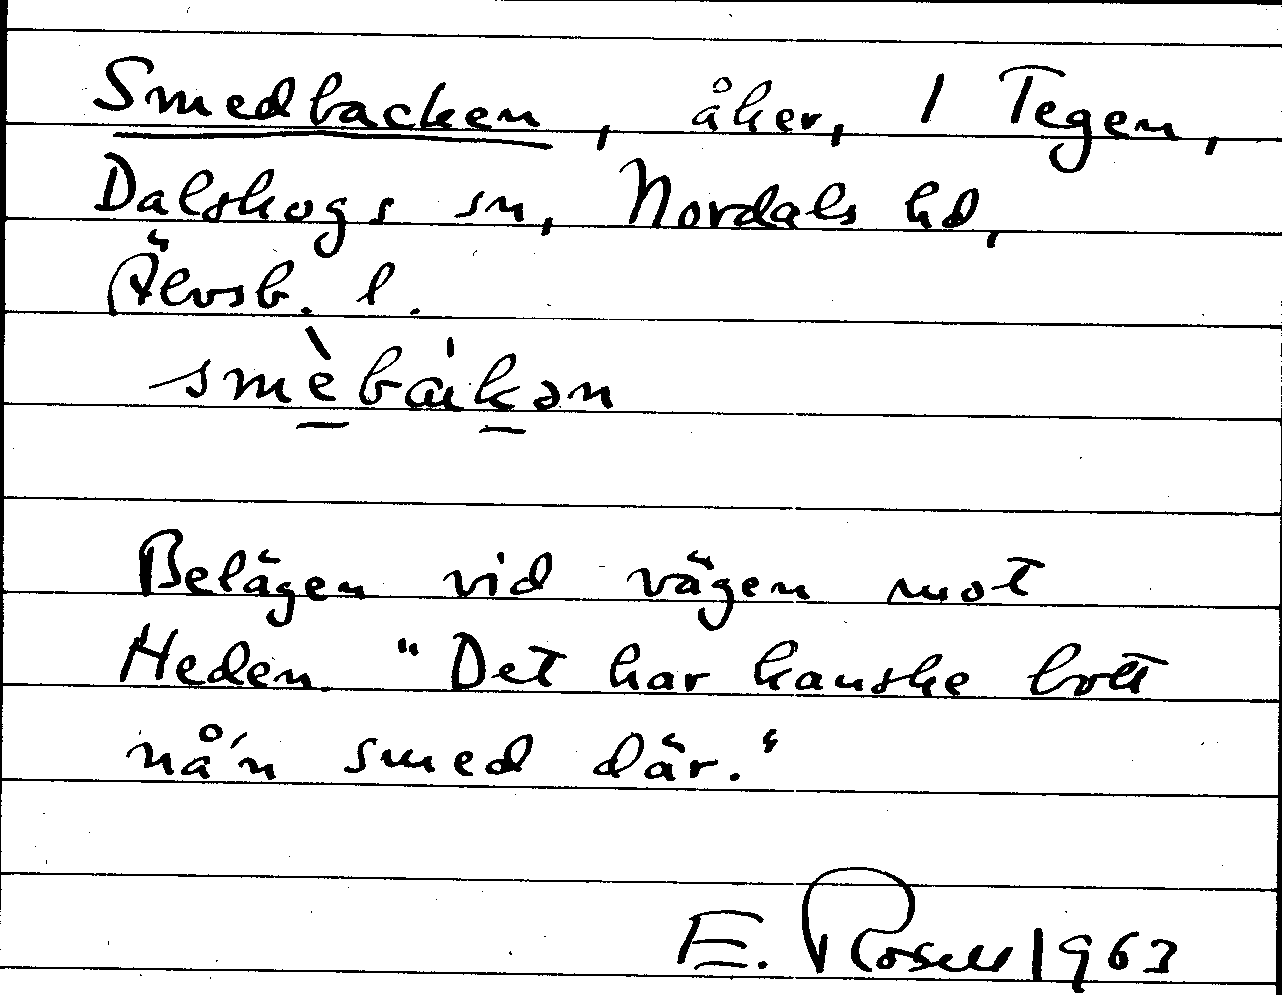 Smedbacken, åker, 1 Tegen,
Dalskogs sn, Nordals hd,
Älvsb. l.
smèbákən
Belägen vid vägen mot
Heden. "Det har kanske bott
nå'n smed där."
E. Rosell 1963